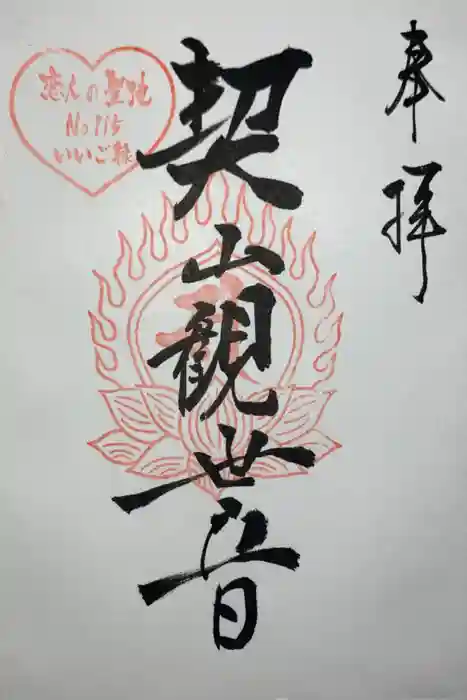 奉拝
契山観世音
恋人の聖地
No 115
いいご縁